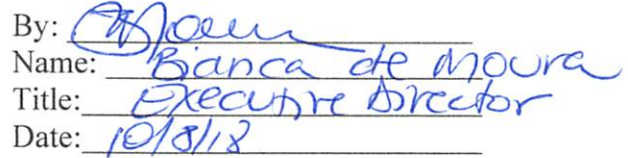 By:
Name: Bianca de Moura
Title: Executive Director
Date: 10/8/18